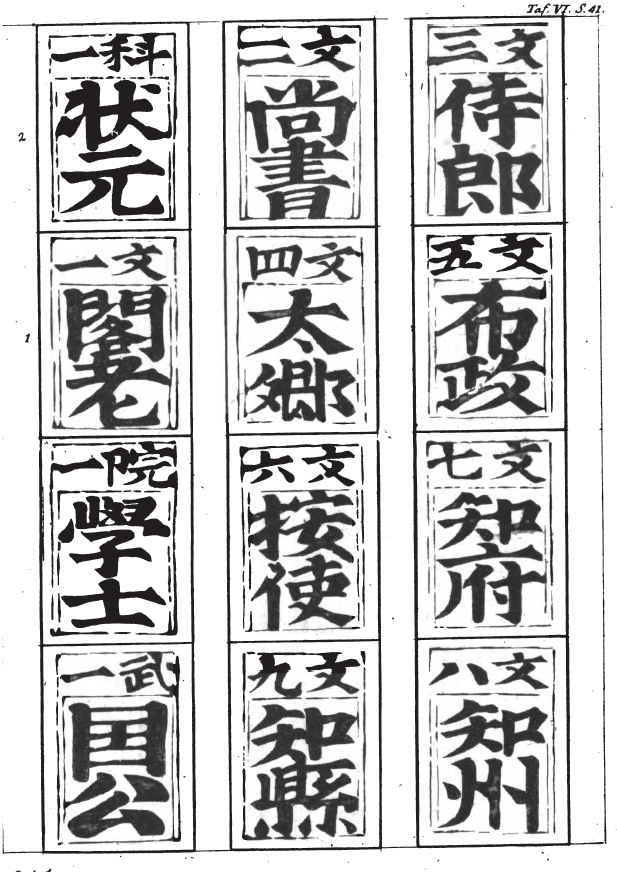 Taf. VI. S. 41.
2
科一
状元
文二
尚書
文三
侍郎
1
文一
閣老
文四
太郷
文五
布政
院一
學士
文六
按使
文七
知府
武一
囯公
文九
知縣
文八
知州